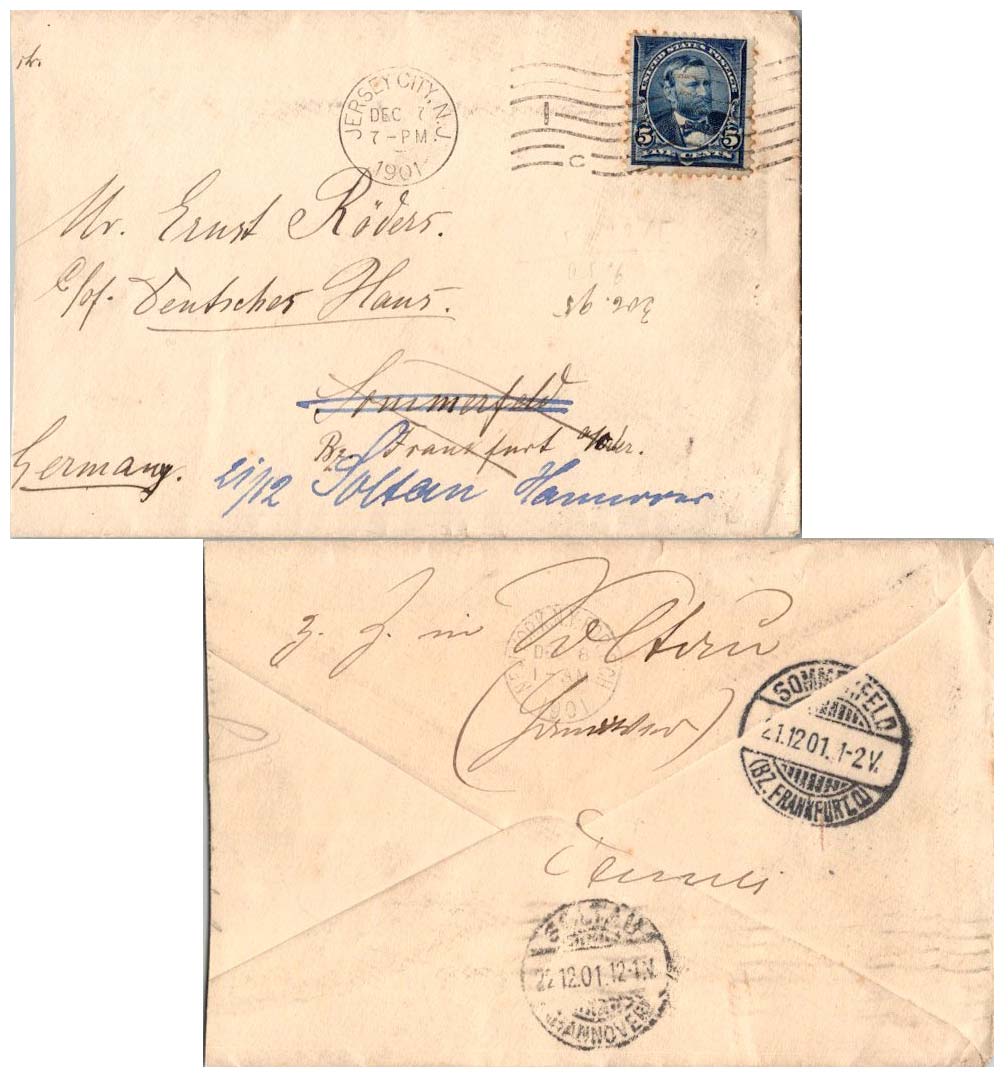 JERSEY CITY, N.J.
DEC 7
7-PM
1901
C
UNITED STATES POSTAGE
5 5
FIVE CENTS
Mr. Ernst Röders.
c/of. Deutsches Haus.
Sommerfeld
Bz. Frankfurt a/Oder.
Germany.
21/12 Soltau Hannover
z. Z. in Soltau
(Hannover)
1901
SOMMERFELD
21.12 01. 1-2 V.
(BZ. FRANKFURT O.)
SOLTAU
22 12.01. 12-1 V.
(HANNOVER)